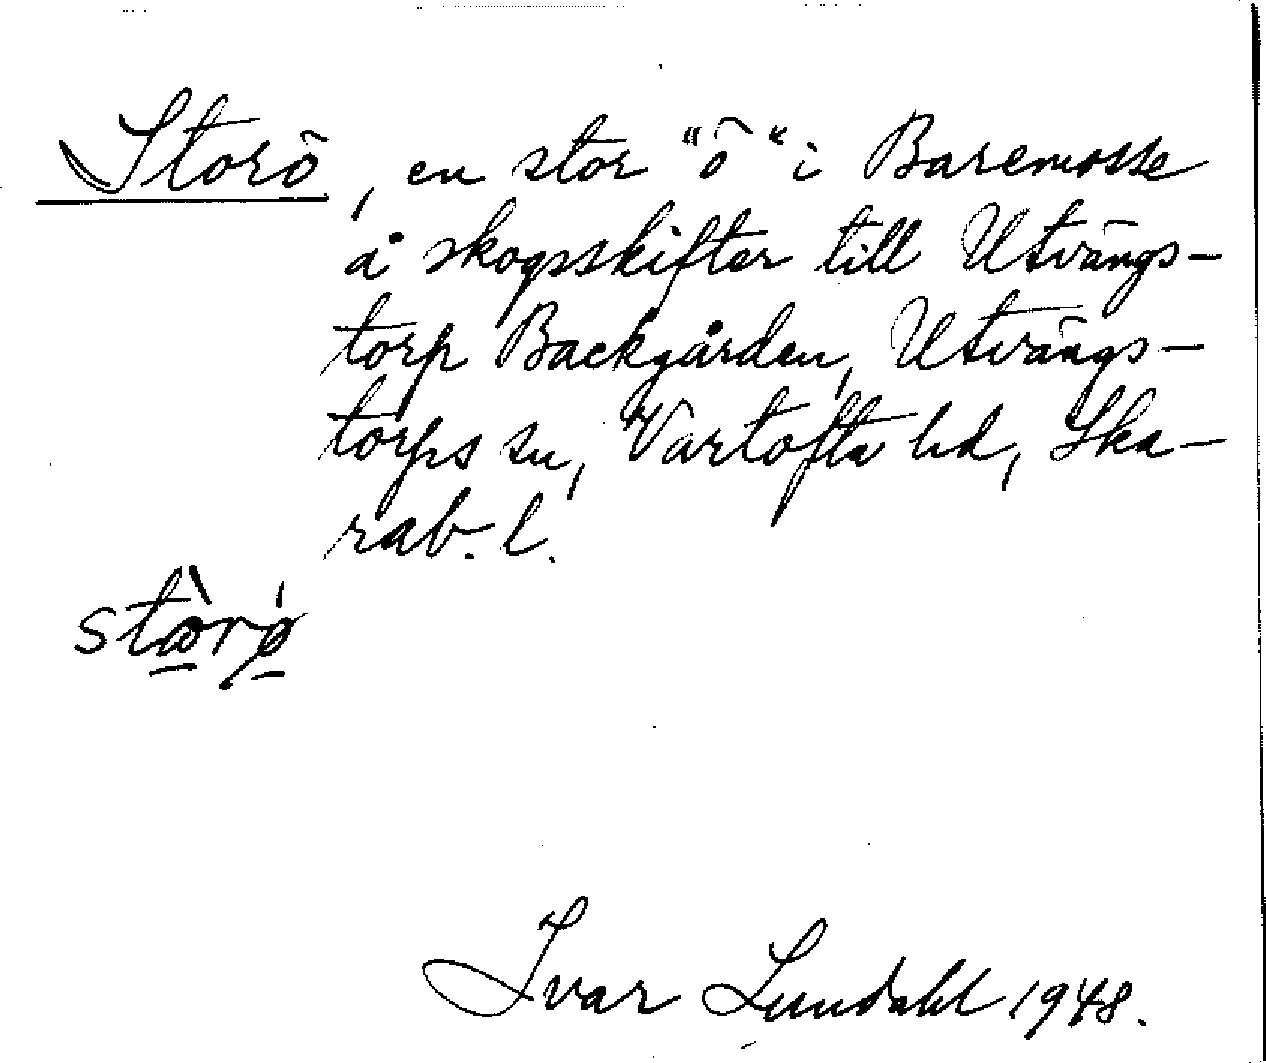 Storö, en stor "ö" i Baremosse
å skogsskifter till Utvängs-
torp Backgården, Utvängs-
torps sn, Vartofta hd, Ska-
rab. l.
Ivar Lundahl 1948.